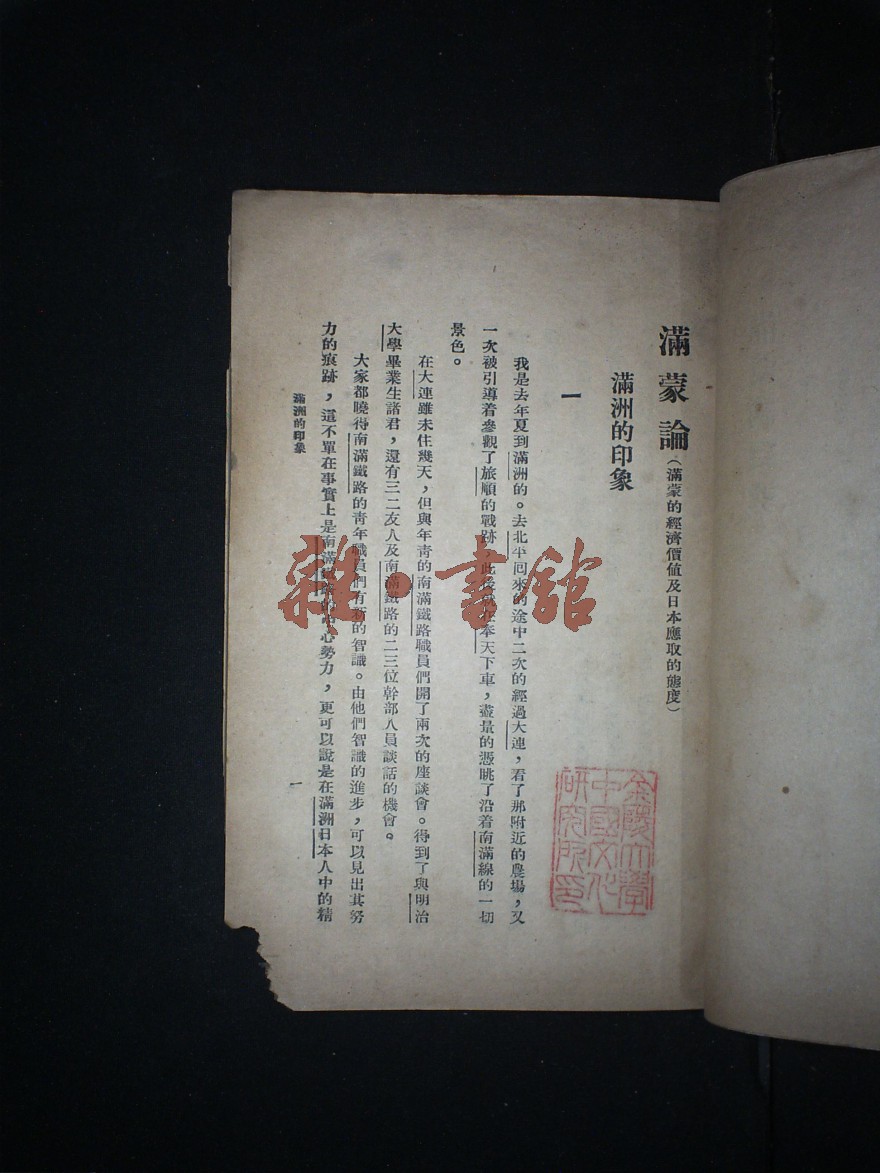 滿蒙論（滿蒙的經濟價値及日本應取的態度）
滿洲的印象
一
我是去年夏到滿洲的。去北平囘來的途中二次的經過大連，看了那附近的農場，又
一次被引導着參觀了旅順的戰跡，此後在奉天下車，盡量的憑眺了沿着南滿線的一切
景色。
在大連雖未住幾天，但與年靑的南滿鐵路職員們開了兩次的座談會。得到了與明治
大學畢業生諸君，還有三二友人及南滿鐵路的二三位幹部人員談話的機會。
大家都曉得南滿鐵路的靑年職員們有新的智識。由他們智識的進步，可以見出其努
力的痕跡，這不單在事實上是南滿鐵路的中心勢力，更可以說是在滿洲日本人中的精
滿洲的印象
一
金陵大學
中國文化
研究所印
雜·書館